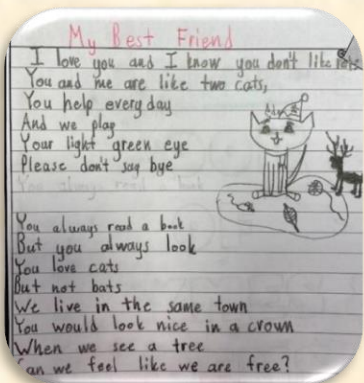 My Best Friend
I love you and I know you don't like rats
You and me are like two cats,
You help every day
And we play
Your light green eye
Please don't say bye
You always read a book
You always read a book
But you always look
You love cats
But not bats
We live in the same town
You would look nice in a crown
When we see a tree
Can we feel like we are free?